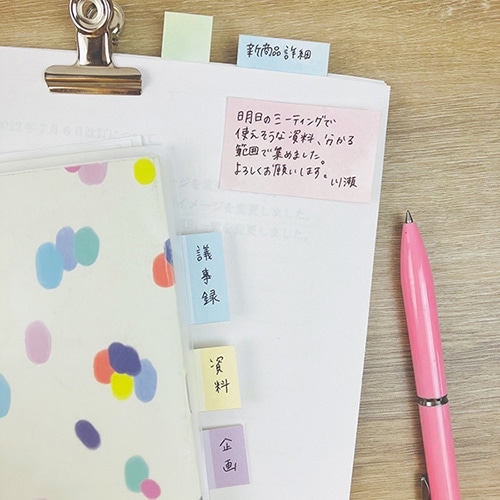 新商品詳細
明日のミーティングで
使えそうな資料、分かる
範囲で集めました。
よろしくお願いします。川瀬
イメージを変更しました。
議事録
資料
企画